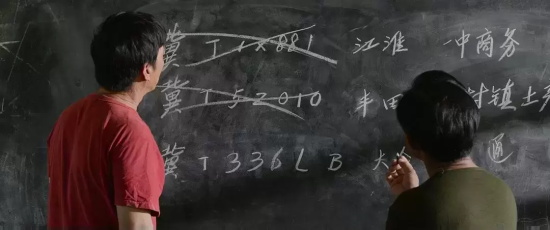 冀 T 1X881 江淮 一中商务
冀 T 52010 丰田 镇土
冀 T 336LB 大 通